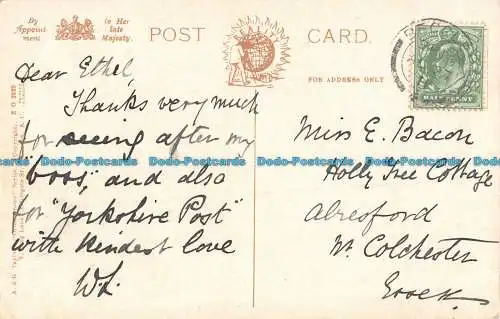 By
Appoint
ment
to Her
late
Majesty.
POST CARD.
FOR ADDRESS ONLY
HALFPENNY
Dear Ethel
Thanks very much
for seeing after my
boos", and also
for "Yorkshire Post"
with kindest love
W.L.
Miss E. Bacon
Holly Tree Cottage
Alresford
Nr. Colchester
Essex.
Dodo-Postcards Dodo-Postcards Dodo-Postcards Dodo-Postcards